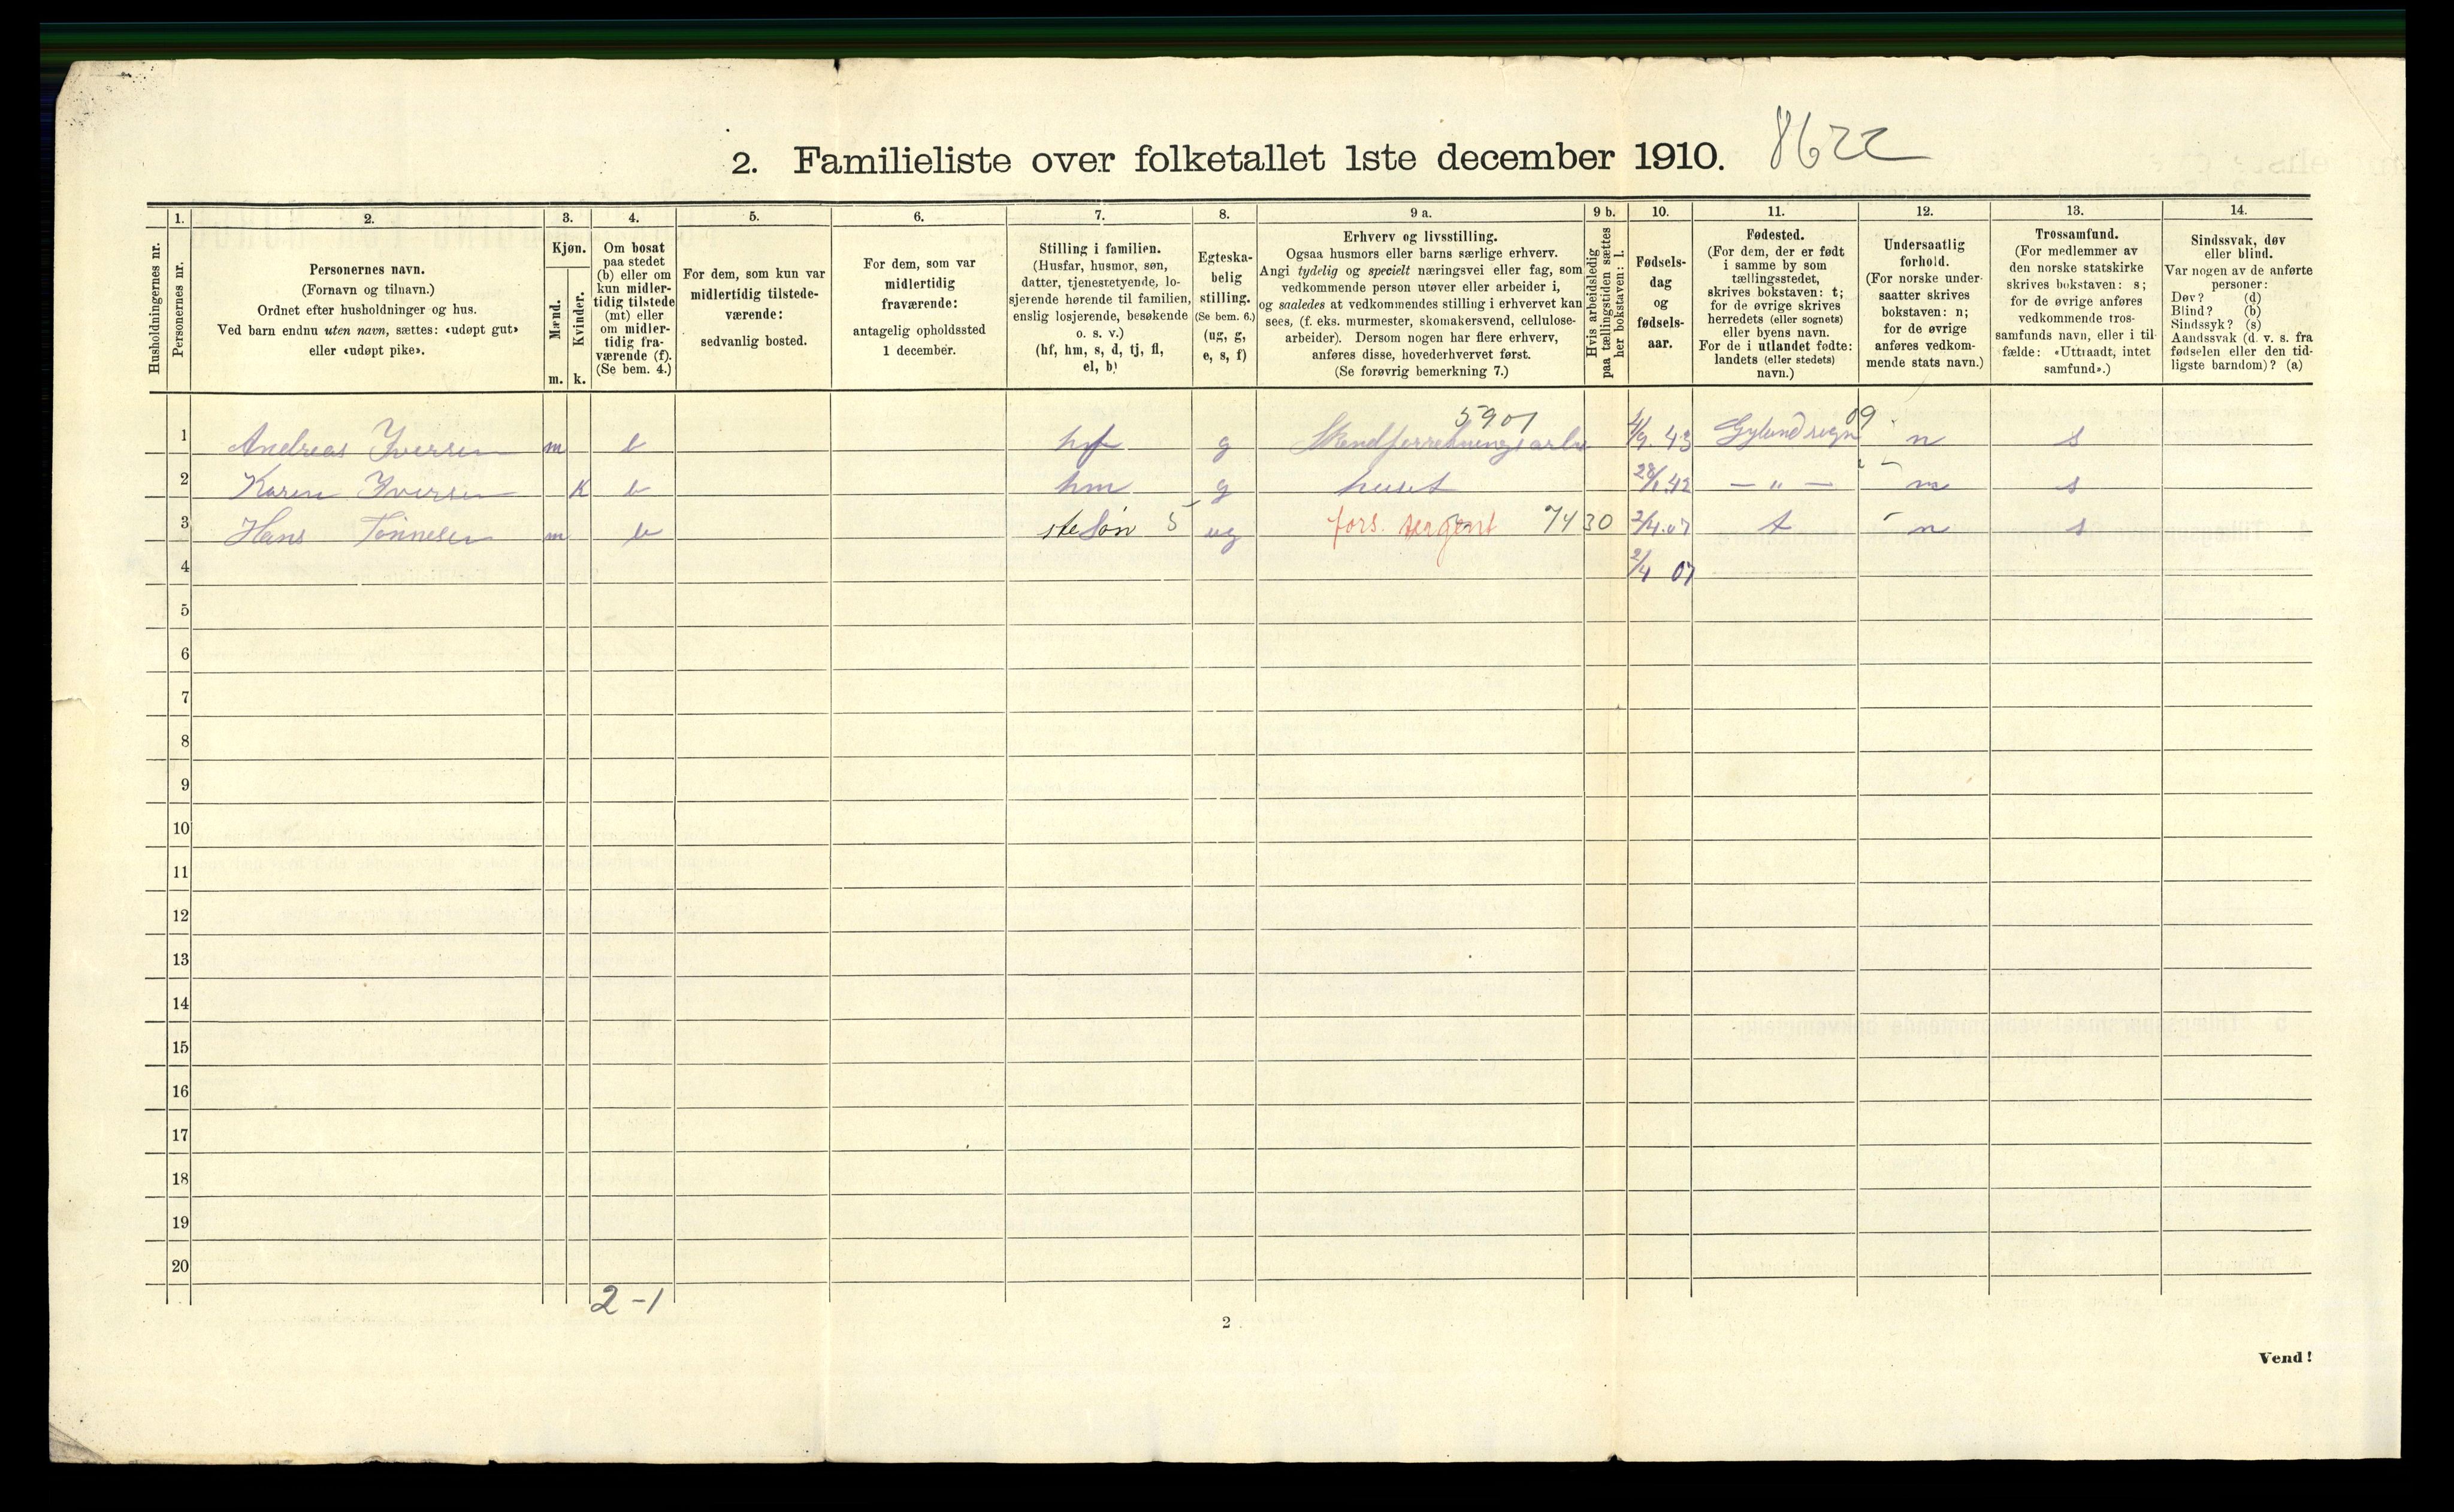 2. Familieliste over folketallet 1ste december 1910. 8622
Husholdningernes nr.
1. Personernes nr.
2. Personernes navn. (Fornavn og tilnavn.) Ordnet efter husholdninger og hus. Ved barn endnu uten navn, sættes: «udøpt gut» eller «udøpt pike».
3. Kjøn. Mænd. m. Kvinder. k.
4. Om bosat paa stedet (b) eller om kun midlertidig tilstede (mt) eller om midlertidig fraværende (f). (Se bem. 4.)
5. For dem, som kun var midlertidig tilstedeværende: sedvanlig bosted.
6. For dem, som var midlertidig fraværende: antagelig opholdssted 1 december.
7. Stilling i familien. (Husfar, husmor, søn, datter, tjenestetyende, losjerende hørende til familien, enslig losjerende, besøkende o. s. v.) (hf, hm, s, d, tj, fl, el, b)
8. Egteskabelig stilling. (Se bem. 6.) (ug, g, e, s, f)
9 a. Erhverv og livsstilling. Ogsaa husmors eller barns særlige erhverv. Angi tydelig og specielt næringsvei eller fag, som vedkommende person utøver eller arbeider i, og saaledes at vedkommendes stilling i erhvervet kan sees, (f. eks. murmester, skomakersvend, cellulosearbeider). Dersom nogen har flere erhverv, anføres disse, hovederhvervet først. (Se forøvrig bemerkning 7.)
9 b. Hvis arbeidsledig paa tællingstiden sættes her bokstaven: l.
10. Fødselsdag og fødselsaar.
11. Fødested. (For dem, der er født i samme by som tællingsstedet, skrives bokstaven: t; for de øvrige skrives herredets (eller sognets) eller byens navn. For de i utlandet fødte: landets (eller stedets) navn.)
12. Undersaatlig forhold. (For norske undersaatter skrives bokstaven: n; for de øvrige anføres vedkommende stats navn.)
13. Trossamfund. (For medlemmer av den norske statskirke skrives bokstaven: s; for de øvrige anføres vedkommende trossamfunds navn, eller i tilfælde: «Uttraadt, intet samfund».)
14. Sindssvak, døv eller blind. Var nogen av de anførte personer: Døv? (d) Blind? (b) Sindssyk? (s) Aandssvak (d. v. s. fra fødselen eller den tidligste barndom)? (a)
5901 09
1 Andreas Iversen m b hf g 4/9 43 Gyland sogn n s
2 Karen Iversen k b hm g huset 28/1.42 — " — n s
3 Hans Tønnesen m b stesøn 5 ug fors. sergent 7430 2/4.07 t n s
4 2/4 07
5
6
7
8
9
10
11
12
13
14
15
16
17
18
19
20
2-1
2
Vend!